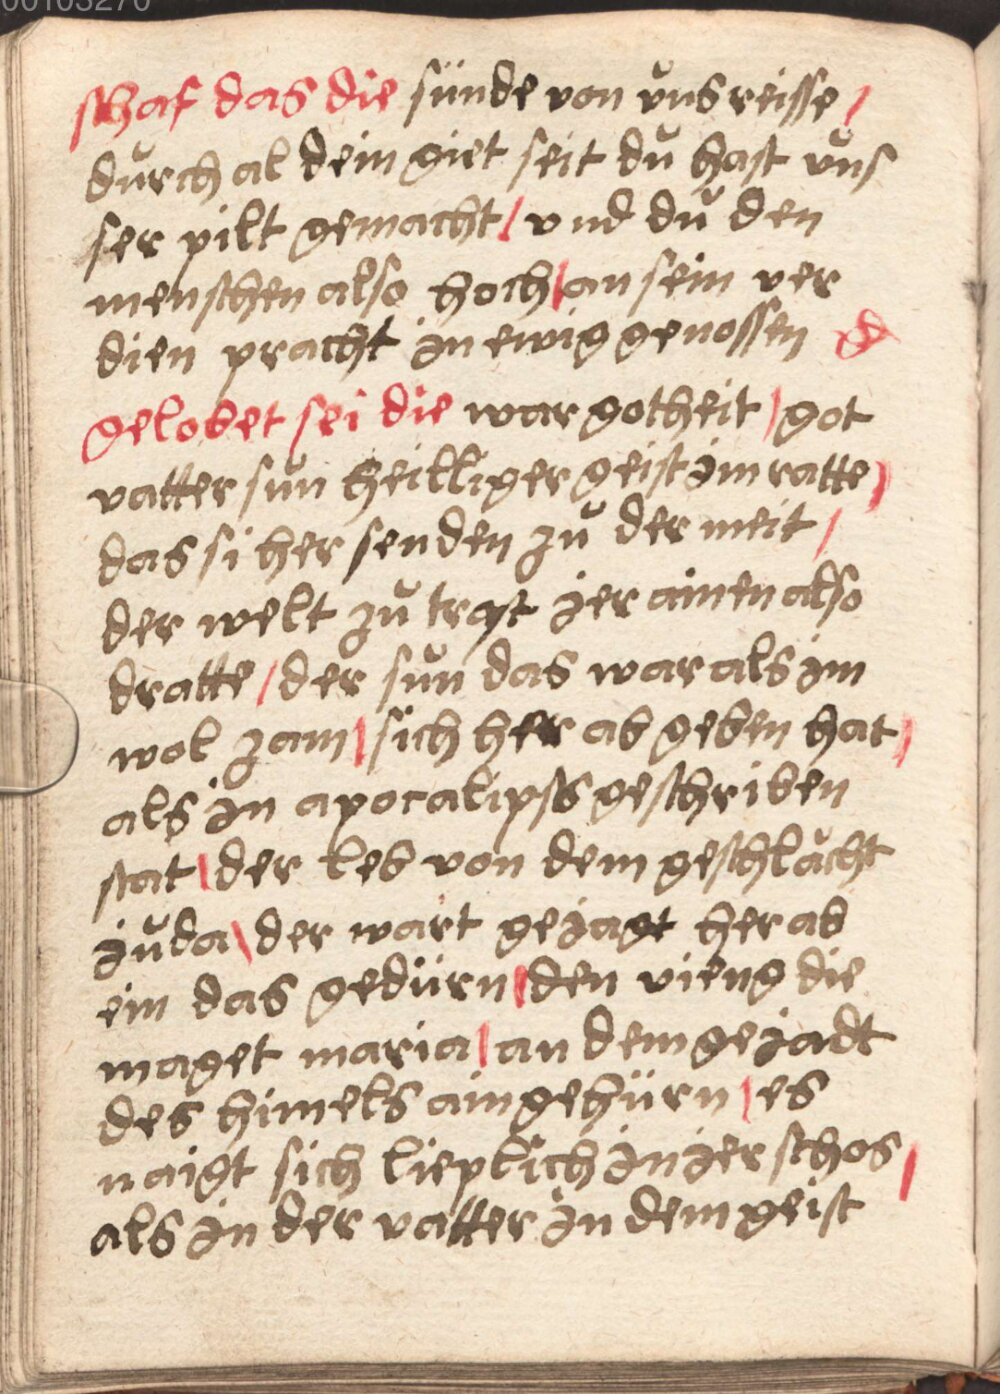 00103270
schaf das die sünde von vns reisse /
dürch al dein giet seit dü hast vns
ser pilt gemacht / vnd dü den
menschen also hoch / an sein ver
dien pracht in ewig genossen
gelobet sei die war gotheit / got
vatter sün heilliger geist im ratte /
das si her senden zü der meit /
der welt zü trast jer ainen also
dratte / der sün das war als im
wol zam / sich her ab geben hat /
als in apocalipss geschriben
stat / der leb von dem geschlächt
jüda / der wart gejagt her ab
ein das gedürn / den vieng die
maget maria / an dem gejadt
des himels aingehürn / es
naigt sich lieplich in jer schos /
als in der vatter in dem geist